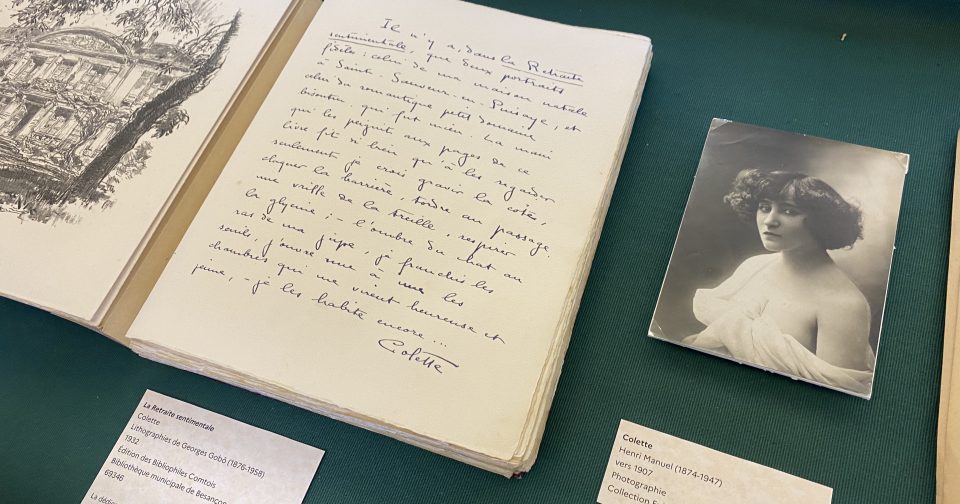 Il n'y a, dans la Retraite
sentimentale, que deux portraits
fidèles : celui de ma maison natale
à Saint-Sauveur-en-Puisaye, et
celui du romantique petit domaine
bisontin, qui fut mien. La main
qui les peignit aux pages de ce
livre fit si bien qu'à les regarder
seulement je crois gravir la côte,
cliquer la barrière, tordre au passage
une vrille de la treille, respirer
la glycine ; - l'ombre du chat au
ras de ma jupe, je franchis les
seuils, j'ouvre une à une les
chambres qui me virent heureuse et
jeune, - je les habite encore...
Colette
La Retraite sentimentale
Colette
Lithographies de Georges Gobô (1876-1958)
1932
Édition des Bibliophiles Comtois
Bibliothèque municipale de Besançon
69346
La
Colette
Henri Manuel (1874-1947)
vers 1907
Photographie
Collection